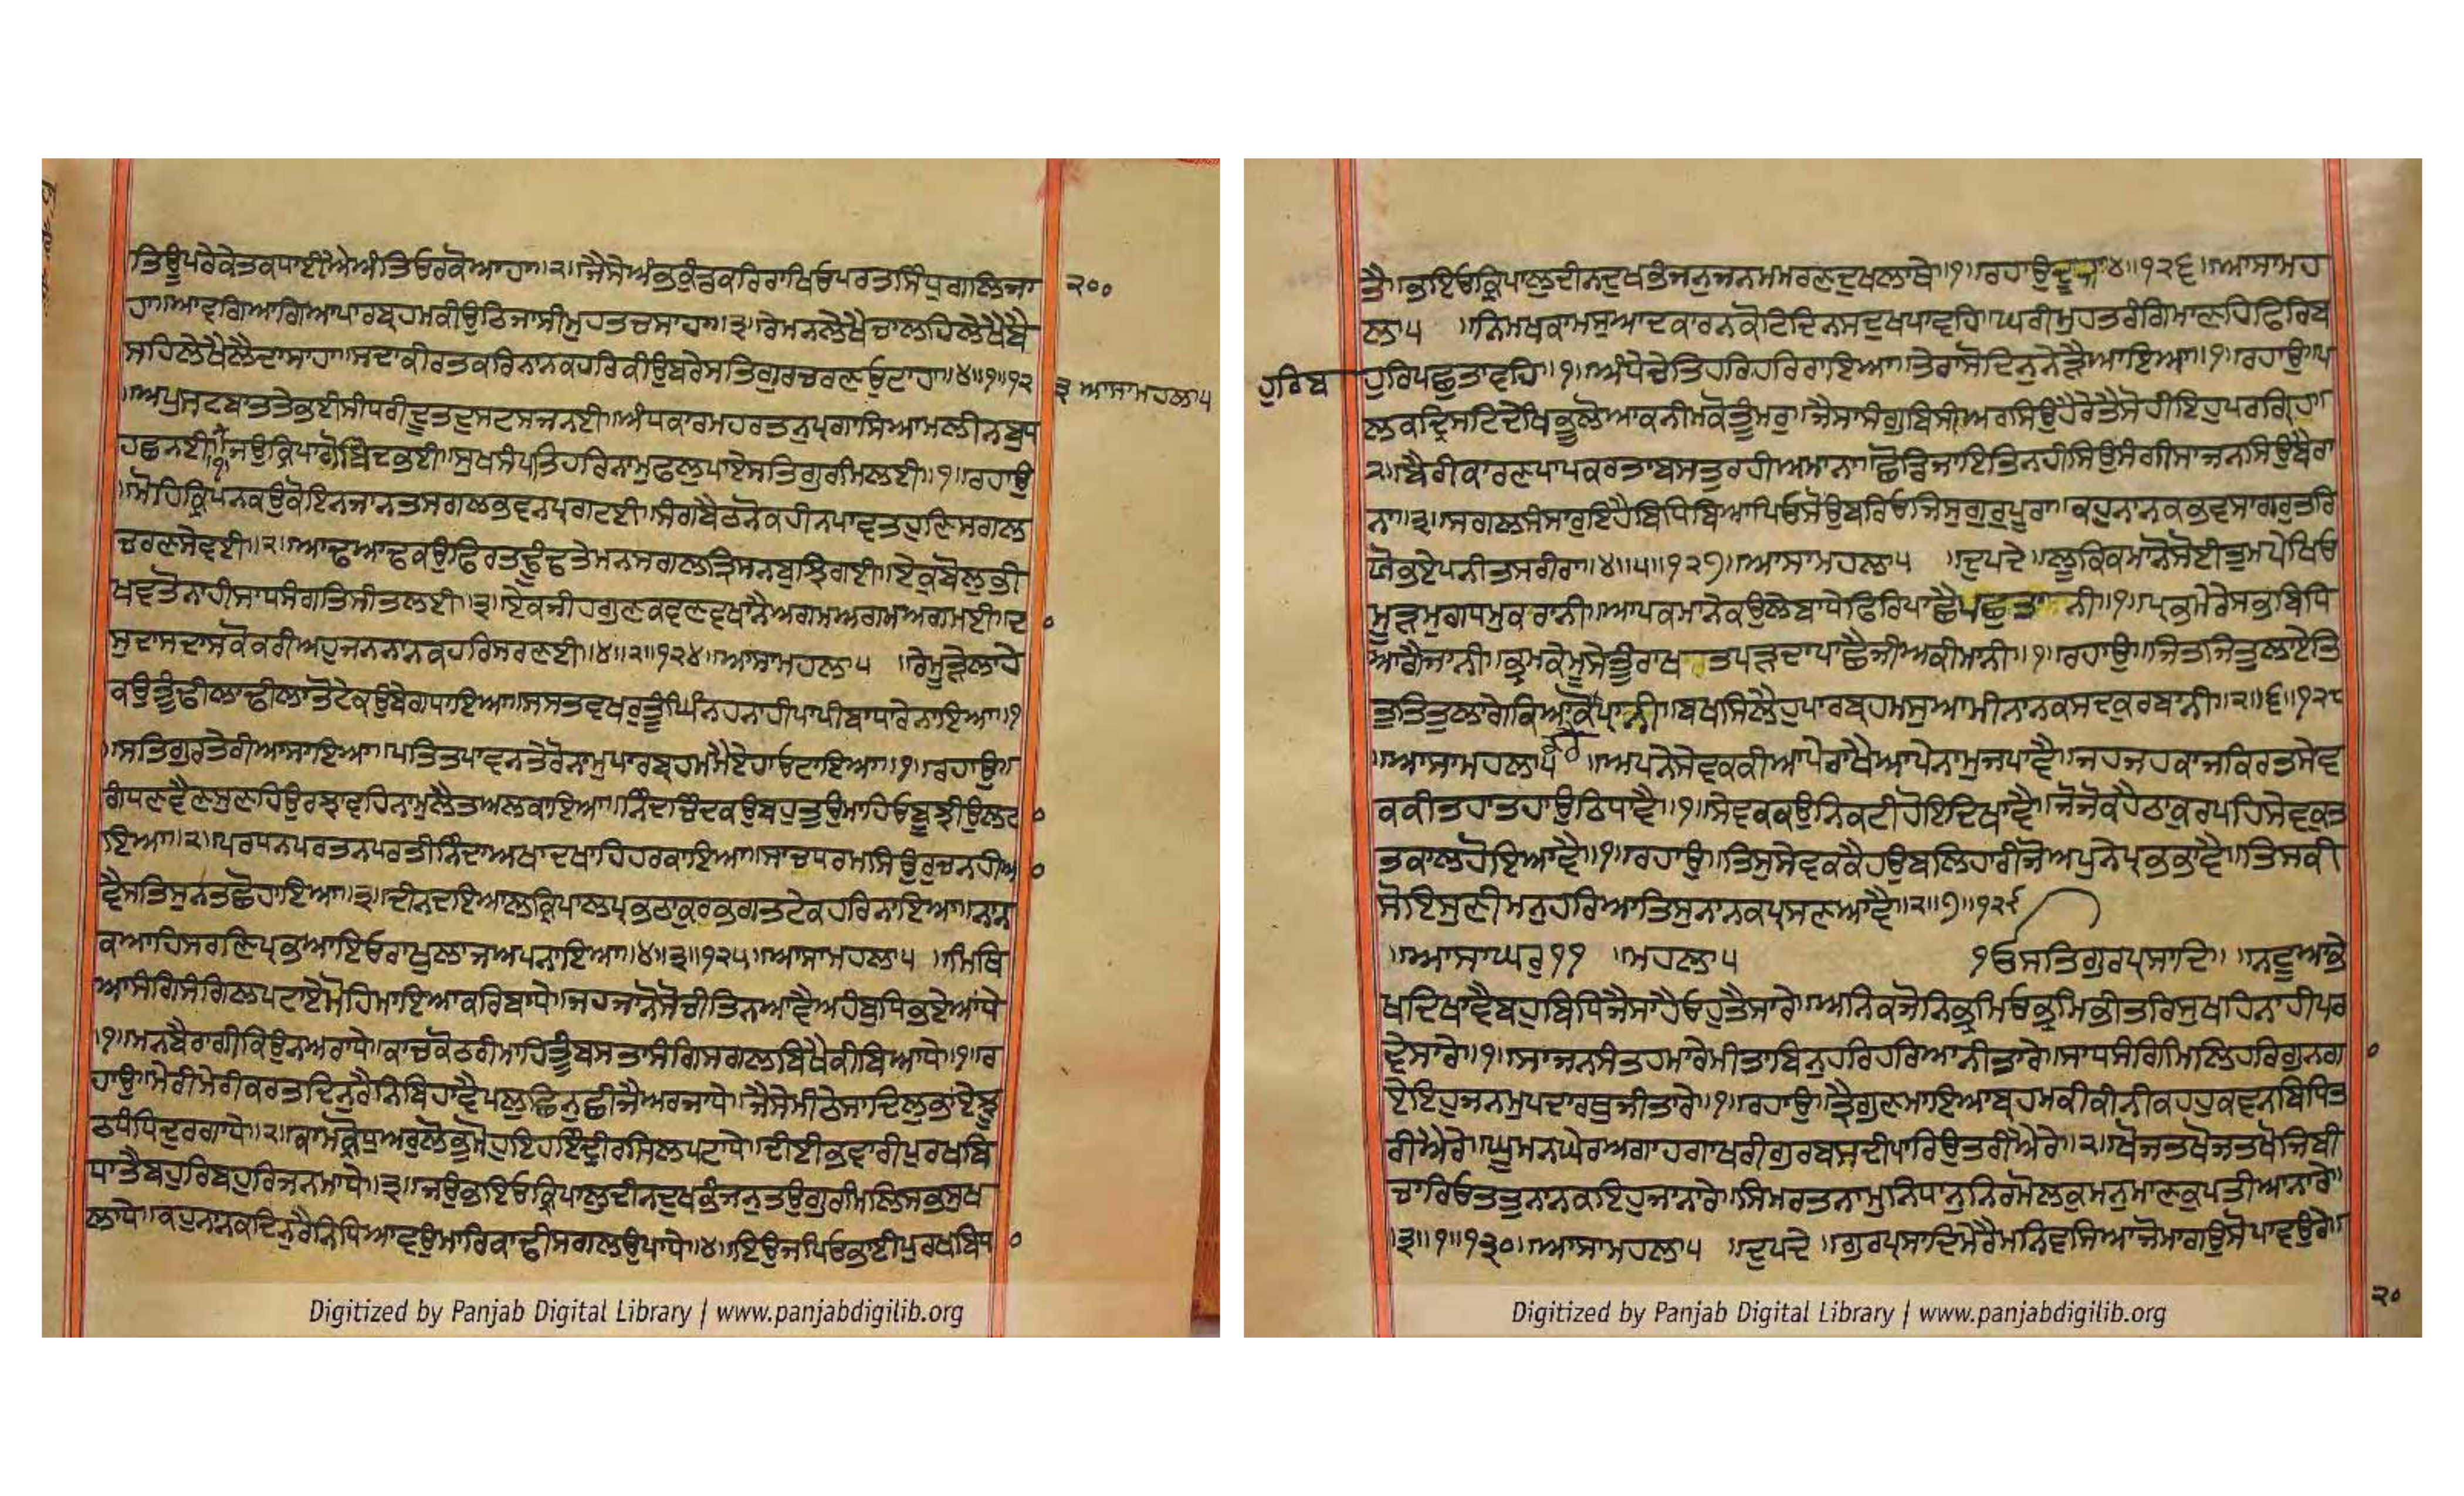 ਤਿਊਪਰੇਕੇਤਕਪਾਈਐਅੰਤਿਓਰਕੋਆਹਾ॥੨॥ਜੈਸੇਅੰਭਕੁੰਡਕਰਿਰਾਖਿਓਪਰਤਸਿੰਧੁਗਲਿਜਾ
੨੦੦
ਹਾ॥ਆਵਗਿਆਗਿਆਪਾਰਬ੍ਰਹਮਕੀਉਠਿਜਾਸੀਮੁਹਤਚਸਾਹਾ॥੩॥ਰੇਮਨਲੇਖੈਚਾਲਹਿਲੇਖੈਬੈ
ਸਹਿਲੇਖੈਲੈਦਾਸਾਹਾ॥ਸਦਾਕੀਰਤਕਰਿਨਾਨਕਹਰਿਕੀਉਬਰੇਸਤਿਗੁਰਚਰਣਓਟਾਹਾ॥੪॥੧॥੧੨
੩ ਆਸਾਮਹਲਾ੫
॥ਅਪੁਸਟਬਾਤਤੇਭਈਸੀਧਰੀਦੂਤਦੁਸਟਸਜਨਈ॥ਅੰਧਕਾਰਮਹਰਤਨੁਪ੍ਰਗਾਸਿਆਮਲੀਨਬੁਧ
ਹਛਨਈ॥੧॥ਜਉਕ੍ਰਿਪਾਗੋਬਿੰਦਭਈ॥ਸੁਖਸੰਪਤਿਹਰਿਨਾਮੁਫਲੁਪਾਏਸਤਿਗੁਰਮਿਲਈ॥੧॥ਰਹਾਉ
॥ਮੋਹਿਕ੍ਰਿਪਨਕਉਕੋਇਨਜਾਨਤਸਗਲਭਵਨਪ੍ਰਗਟਈ॥ਸੰਗਬੈਠਨੋਕਹੀਨਪਾਵਤਹੁਣਿਸਗਲ
ਚਰਣਸੇਵਈ॥੨॥ਆਢਆਢਕਉਫਿਰਤਢੂੰਢਤੇਮਨਸਗਲਤ੍ਰਿਸਨਬੁਝਿਗਈ॥ਏਕੁਬੋਲੁਭੀ
ਖਵਤੋਨਾਹੀਸਾਧਸੰਗਤਿਸੀਤਲਈ॥੩॥ਏਕਜੀਹਗੁਣਕਵਣਵਖਾਨੈਅਗਮਅਗਮਅਗਮਈ॥ਦ
ਸੁਦਾਸਦਾਸਕੋਕਰੀਅਹੁਜਨਨਾਨਕਹਰਿਸਰਣਈ॥੪॥੨॥੧੨੪॥ਆਸਾਮਹਲਾ੫ ॥ਰੇਮੂੜੇਲਾਹੇ
ਕਉਤੂੰਢੀਲਾਢੀਲਾਤੋਟੇਕਉਬੇਗਧਾਇਆ॥ਸਸਤਵਖਰੁਤੂੰਘਿੰਨਹਨਾਹੀਪਾਪੀਬਾਧਾਰੇਨਾਇਆ॥੧
॥ਸਤਿਗੁਰਤੇਰੀਆਸਾਇਆ॥ਪਤਿਤਪਾਵਨਤੇਰੋਨਾਮੁਪਾਰਬ੍ਰਹਮਮੈਏਹਾਓਟਾਇਆ॥੧॥ਰਹਾਉ॥
ਗੰਧਿਣਵੈਣਸੁਣਹਿਉਰਝਾਵਹਿਨਾਮੁਲੈਤਅਲਕਾਇਆ॥ਨਿੰਦਾਚਿੰਦਕਉਬਹੁਤੁਉਮਾਹਿਓਬੂਝੀਉਲਟ
ਇਆ॥੨॥ਪਰਧਨਪਰਤਨਪਰਤੀਨਿੰਦਾਅਖਾਦਖਾਹਿਹਰਕਾਇਆ॥ਸਾਚਧਰਮਸਿਉਰੁਚਨਹੀਆ
ਵੈਸਤਿਸੁਨਤਛੋਹਾਇਆ॥੩॥ਦੀਨਦਇਆਲਕ੍ਰਿਪਾਲਪ੍ਰਭਠਾਕੁਰਭਗਤਟੇਕਹਰਿਨਾਇਆ॥ਨਾਨ
ਕਆਹਿਸਰਣਿਪ੍ਰਭਆਇਓਰਾਖੁਲਾਜਅਪਨਾਇਆ॥੪॥੩॥੧੨੫॥ਆਸਾਮਹਲਾ੫ ॥ਮਿਥਿ
ਆਸੰਗਿਸੰਗਿਲਪਟਾਏਮੋਹਿਮਾਇਆਕਰਿਬਾਧੇ॥ਜਹਜਾਨੋਸੋਚੀਤਿਨਆਵੈਅਹੰਬੁਧਿਭਏਆਂਧੇ
॥੧॥ਮਨਬੈਰਾਗੀਕਿਉਨਅਰਾਧੇ॥ਕਾਚਕੋਠਰੀਮਾਹਿਤੂੰਬਸਤਾਸੰਗਿਸਗਲਬਿਖੈਕੀਬਿਆਧੇ॥੧॥ਰ
ਹਾਉ॥ਮੇਰੀਮੇਰੀਕਰਤਦਿਨੁਰੈਨਿਬਿਹਾਵੈਪਲੁਛਿਨੁਛੀਜੈਅਰਜਾਧੇ॥ਜੈਸੇਮੀਠੈਸਾਦਿਲੁਭਾਏਝੂ
ਠਧੰਧਿਦੁਰਗਾਧੇ॥੨॥ਕਾਮਕ੍ਰੋਧਅਰੁਲੋਭਮੋਹੁਇਹਇੰਦ੍ਰੀਰਸਿਲਪਟਾਧੇ॥ਦੀਈਭਵਾਰੀਪੁਰਖਬਿ
ਧਾਤੈਬਹੁਰਿਬਹੁਰਿਜਨਮਾਧੇ॥੩॥ਜਉਭਇਓਕ੍ਰਿਪਾਲੁਦੀਨਦੁਖਭੰਜਨੁਤਉਗੁਰਮਿਲਿਸਭਸੁਖ
ਲਾਧੇ॥ਕਹੁਨਾਨਕਦਿਨੁਰੈਨਿਧਿਆਵਉਮਾਰਿਕਾਢੀਸਗਲਉਪਾਧੇ॥੪॥ਇਉਜਪਿਓਭਾਈਪੁਰਖਬਿਧ
Digitized by Panjab Digital Library | www.panjabdigilib.org
ਤੈ॥ਭਇਓਕ੍ਰਿਪਾਲੁਦੀਨਦੁਖਭੰਜਨੁਜਨਮਮਰਣਦੁਖਲਾਥੇ॥੧॥ਰਹਾਉਦੂਜਾ॥੪॥੧੨੬॥ਆਸਾਮਹ
ਲਾ੫ ॥ਨਿਮਖਕਾਮਸੁਆਦਕਾਰਨਕੋਟਿਦਿਨਸਦੁਖਪਾਵਹਿ॥ਘਰੀਮੁਹਤਰੰਗਿਮਾਣਹਿਫਿਰਿਬ
ਹੁਰਿਬ
ਹੁਰਿਪਛੁਤਾਵਹਿ॥੧॥ਅੰਧੇਚੇਤਿਹਰਿਹਰਿਰਾਇਆ॥ਤੇਰਾਸੋਦਿਨੁਨੇੜੈਆਇਆ॥੧॥ਰਹਾਉ॥ਪ
ਲਕਦ੍ਰਿਸਟਿਦੇਖਿਭੂਲੋਆਕਨੀਮਕੋਤੂੰਮਰੁ॥ਜੈਸਾਸੰਗੁਬਿਸੀਅਰਸਿਉਹੈਰੇਤੈਸੋਹੀਇਹੁਪਰਗ੍ਰਿਹਾ
੨॥ਬੈਰੀਕਾਰਣਪਾਪਕਰਤਾਬਸਤੁਰਹੀਅਮਾਨਾ॥ਛੋਡਿਜਾਇਤਿਨਹੀਸਿਉਸੰਗੀਸਾਜਨਸਿਉਬੈਰਾ
ਨਾ॥੩॥ਸਗਲਸੰਸਾਰੁਇਹੈਬਿਧਿਬਿਆਪਿਓਸੋਉਬਰਿਓਜਿਸੁਗੁਰੁਪੂਰਾ॥ਕਹੁਨਾਨਕਭਵਸਾਗਰੁਤਰਿ
ਯੋਭਏਪੁਨੀਤਸਰੀਰਾ॥੪॥੫॥੧੨੭॥ਆਸਾਮਹਲਾ੫ ॥ਦੁਪਦੇ॥ਲੂਕਿਕਮਾਨੋਸੋਈਤੁਮਪੇਖਿਓ
ਮੂੜਮੁਗਧਮੁਕਰਾਨੀ॥ਆਪਕਮਾਨੇਕਉਲੇਬਾਧੇਫਿਰਿਪਾਛੈਪਛੁਤਾਨੀ॥੧॥ਪ੍ਰਭਮੇਰੇਸਭਬਿਧਿ
ਆਗੈਜਾਨੀ॥ਭ੍ਰਮਕੇਮੂਸੇਤੂੰਰਾਖਤਪੜਦਾਪਾਛੈਜੀਅਕੀਮਾਨੀ॥੧॥ਰਹਾਉ॥ਜਿਤਜਿਤੁਲਾਏਤਿ
ਤੁਤਿਤੁਲਾਗੇਕਿਆਕੋਪ੍ਰਾਨੀ॥ਬਖਸਿਲੈਹੁਪਾਰਬ੍ਰਹਮਸੁਆਮੀਨਾਨਕਸਦਕੁਰਬਾਨੀ॥੨॥੬॥੧੨੮
॥ਆਸਾਮਹਲਾ੫ ॥ਅਪਨੇਸੇਵਕਕੀਆਪੇਰਾਖੈਆਪੇਨਾਮੁਜਪਾਵੈ॥ਜਹਜਹਕਾਜਕਿਰਤਸੇਵ
ਕਕੀਤਹਾਤਹਾਉਠਿਧਾਵੈ॥੧॥ਸੇਵਕਕਉਨਿਕਟੀਹੋਇਦਿਖਾਵੈ॥ਜੋਜੋਕਹੈਠਾਕੁਰਪਹਿਸੇਵਕੁਤ
ਤਕਾਲਹੋਇਆਵੈ॥੧॥ਰਹਾਉ॥ਤਿਸੁਸੇਵਕਕੈਹਉਬਲਿਹਾਰੀਜੋਅਪੁਨੇਪ੍ਰਭਭਾਵੈ॥ਤਿਸਕੀ
ਸੋਇਸੁਣੀਮਨੁਹਰਿਆਤਿਸੁਨਾਨਕਪ੍ਰਸਣਆਵੈ॥੨॥੭॥੧੨੯
॥ਆਸਾਘਰੁ੧੧ ॥ਮਹਲਾ੫ ੴਸਤਿਗੁਰਪ੍ਰਸਾਦਿ॥ ॥ਨਟੂਆਭੇ
ਖਦਿਖਾਵੈਬਹੁਬਿਧਿਜੈਸਾਹੈਓਹੁਤੈਸਾਰੇ॥ਅਨਿਕਜੋਨਿਭ੍ਰਮਿਓਭ੍ਰਮਿਭੀਤਰਿਸੁਖਹਿਨਾਹੀਪਰ
ਵੇਸਾਰੇ॥੧॥ਸਾਜਨਸੰਤਹਮਾਰੇਮੀਤਾਬਿਨੁਹਰਿਹਰਿਆਨੀਤਾਰੇ॥ਸਾਧਸੰਗਿਮਿਲਿਹਰਿਗੁਨਗਾ
ਏਇਹੁਜਨਮੁਪਦਾਰਥੁਜੀਤਾਰੇ॥੧॥ਰਹਾਉ॥ਤ੍ਰੈਗੁਣਮਾਇਆਬ੍ਰਹਮਕੀਕੀਨੀਕਹਹੁਕਵਨਬਿਧਿਤ
ਰੀਐਰੇ॥ਘੂਮਨਘੇਰਅਗਾਹਗਾਖਰੀਗੁਰਸਬਦੀਪਾਰਿਉਤਰੀਐਰੇ॥੨॥ਖੋਜਤਖੋਜਤਖੋਜਿਬੀ
ਚਾਰਿਓਤਤੁਨਾਨਕਇਹੁਜਾਨਾਰੇ॥ਸਿਮਰਤਨਾਮੁਨਿਧਾਨੁਨਿਰਮੋਲਕੁਮਨੁਮਾਣਕੁਪਤੀਆਨਾਰੇ॥
੩॥੧॥੧੩੦॥ਆਸਾਮਹਲਾ੫ ॥ਦੁਪਦੇ॥ਗੁਰਪ੍ਰਸਾਦਿਮੇਰੈਮਨਿਵਸਿਆਜੋਮਾਗਉਸੋਪਾਵਉਰੇ॥
੨੦
Digitized by Panjab Digital Library | www.panjabdigilib.org